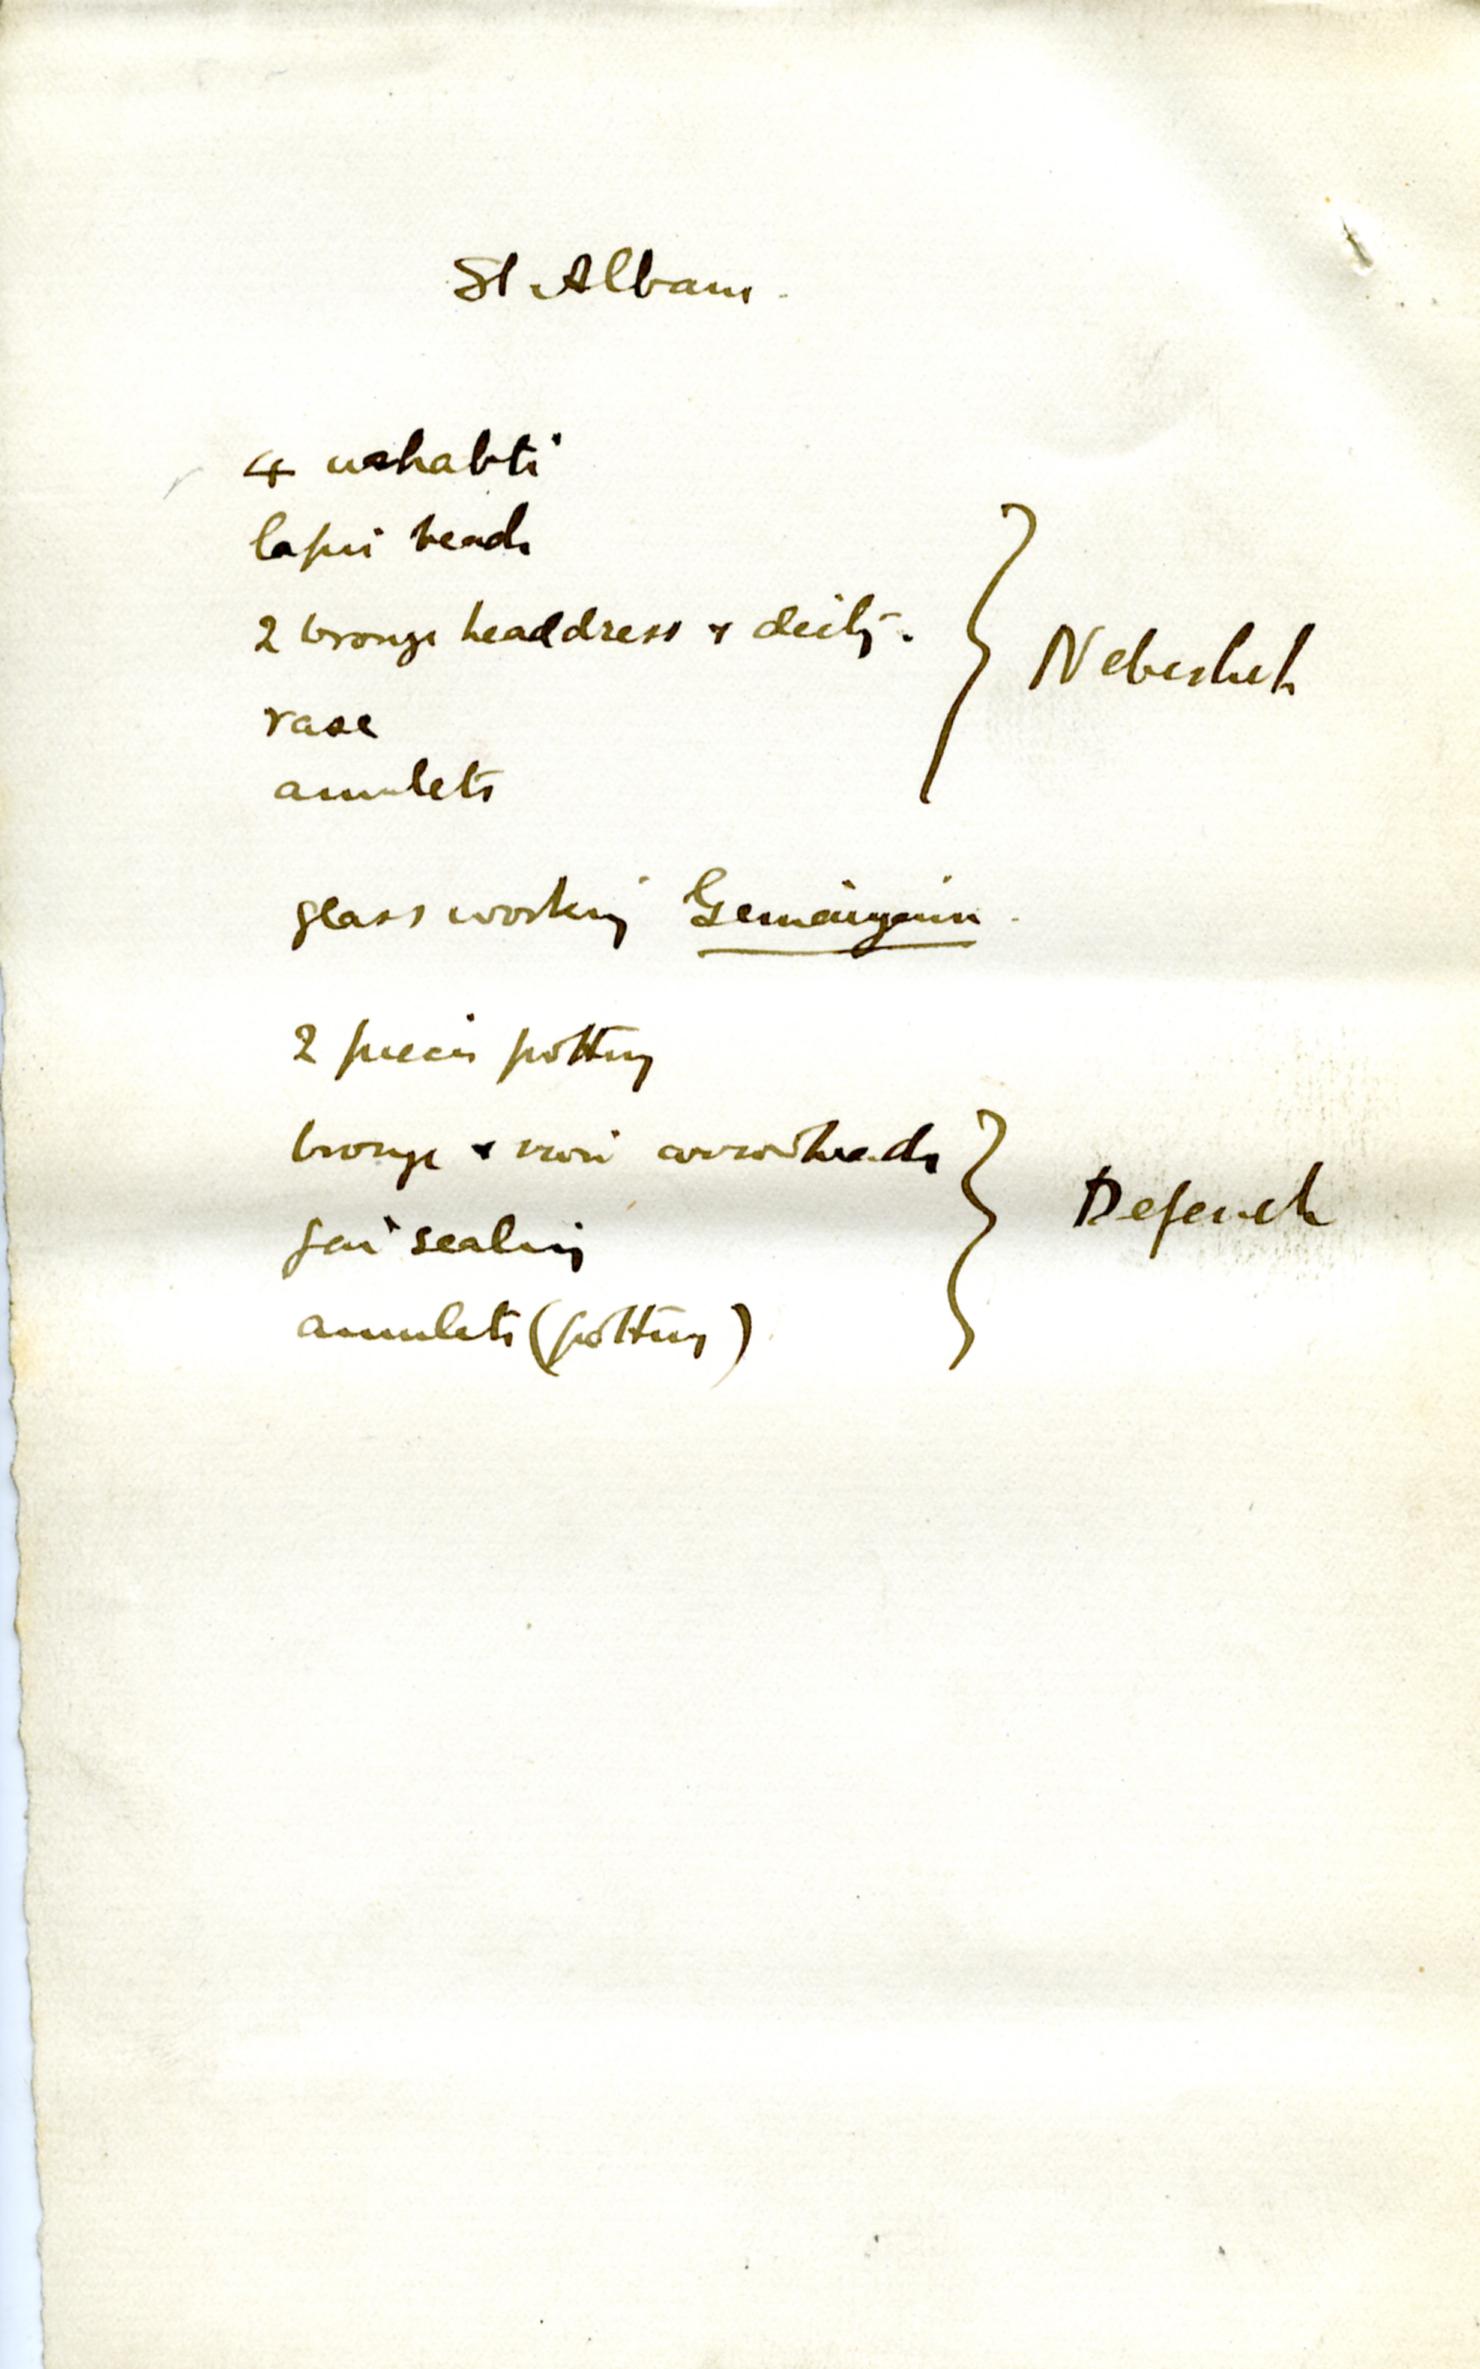 St. Albans.
4 ushabti
lapis beads
2 bronze headdress & deity.
vase
amulets
Nebesheh
glass working Gemaiyemi.
2 pieces pottery
bronze & iron arrowheads
jar sealing
amulets (pottery)
Defeneh